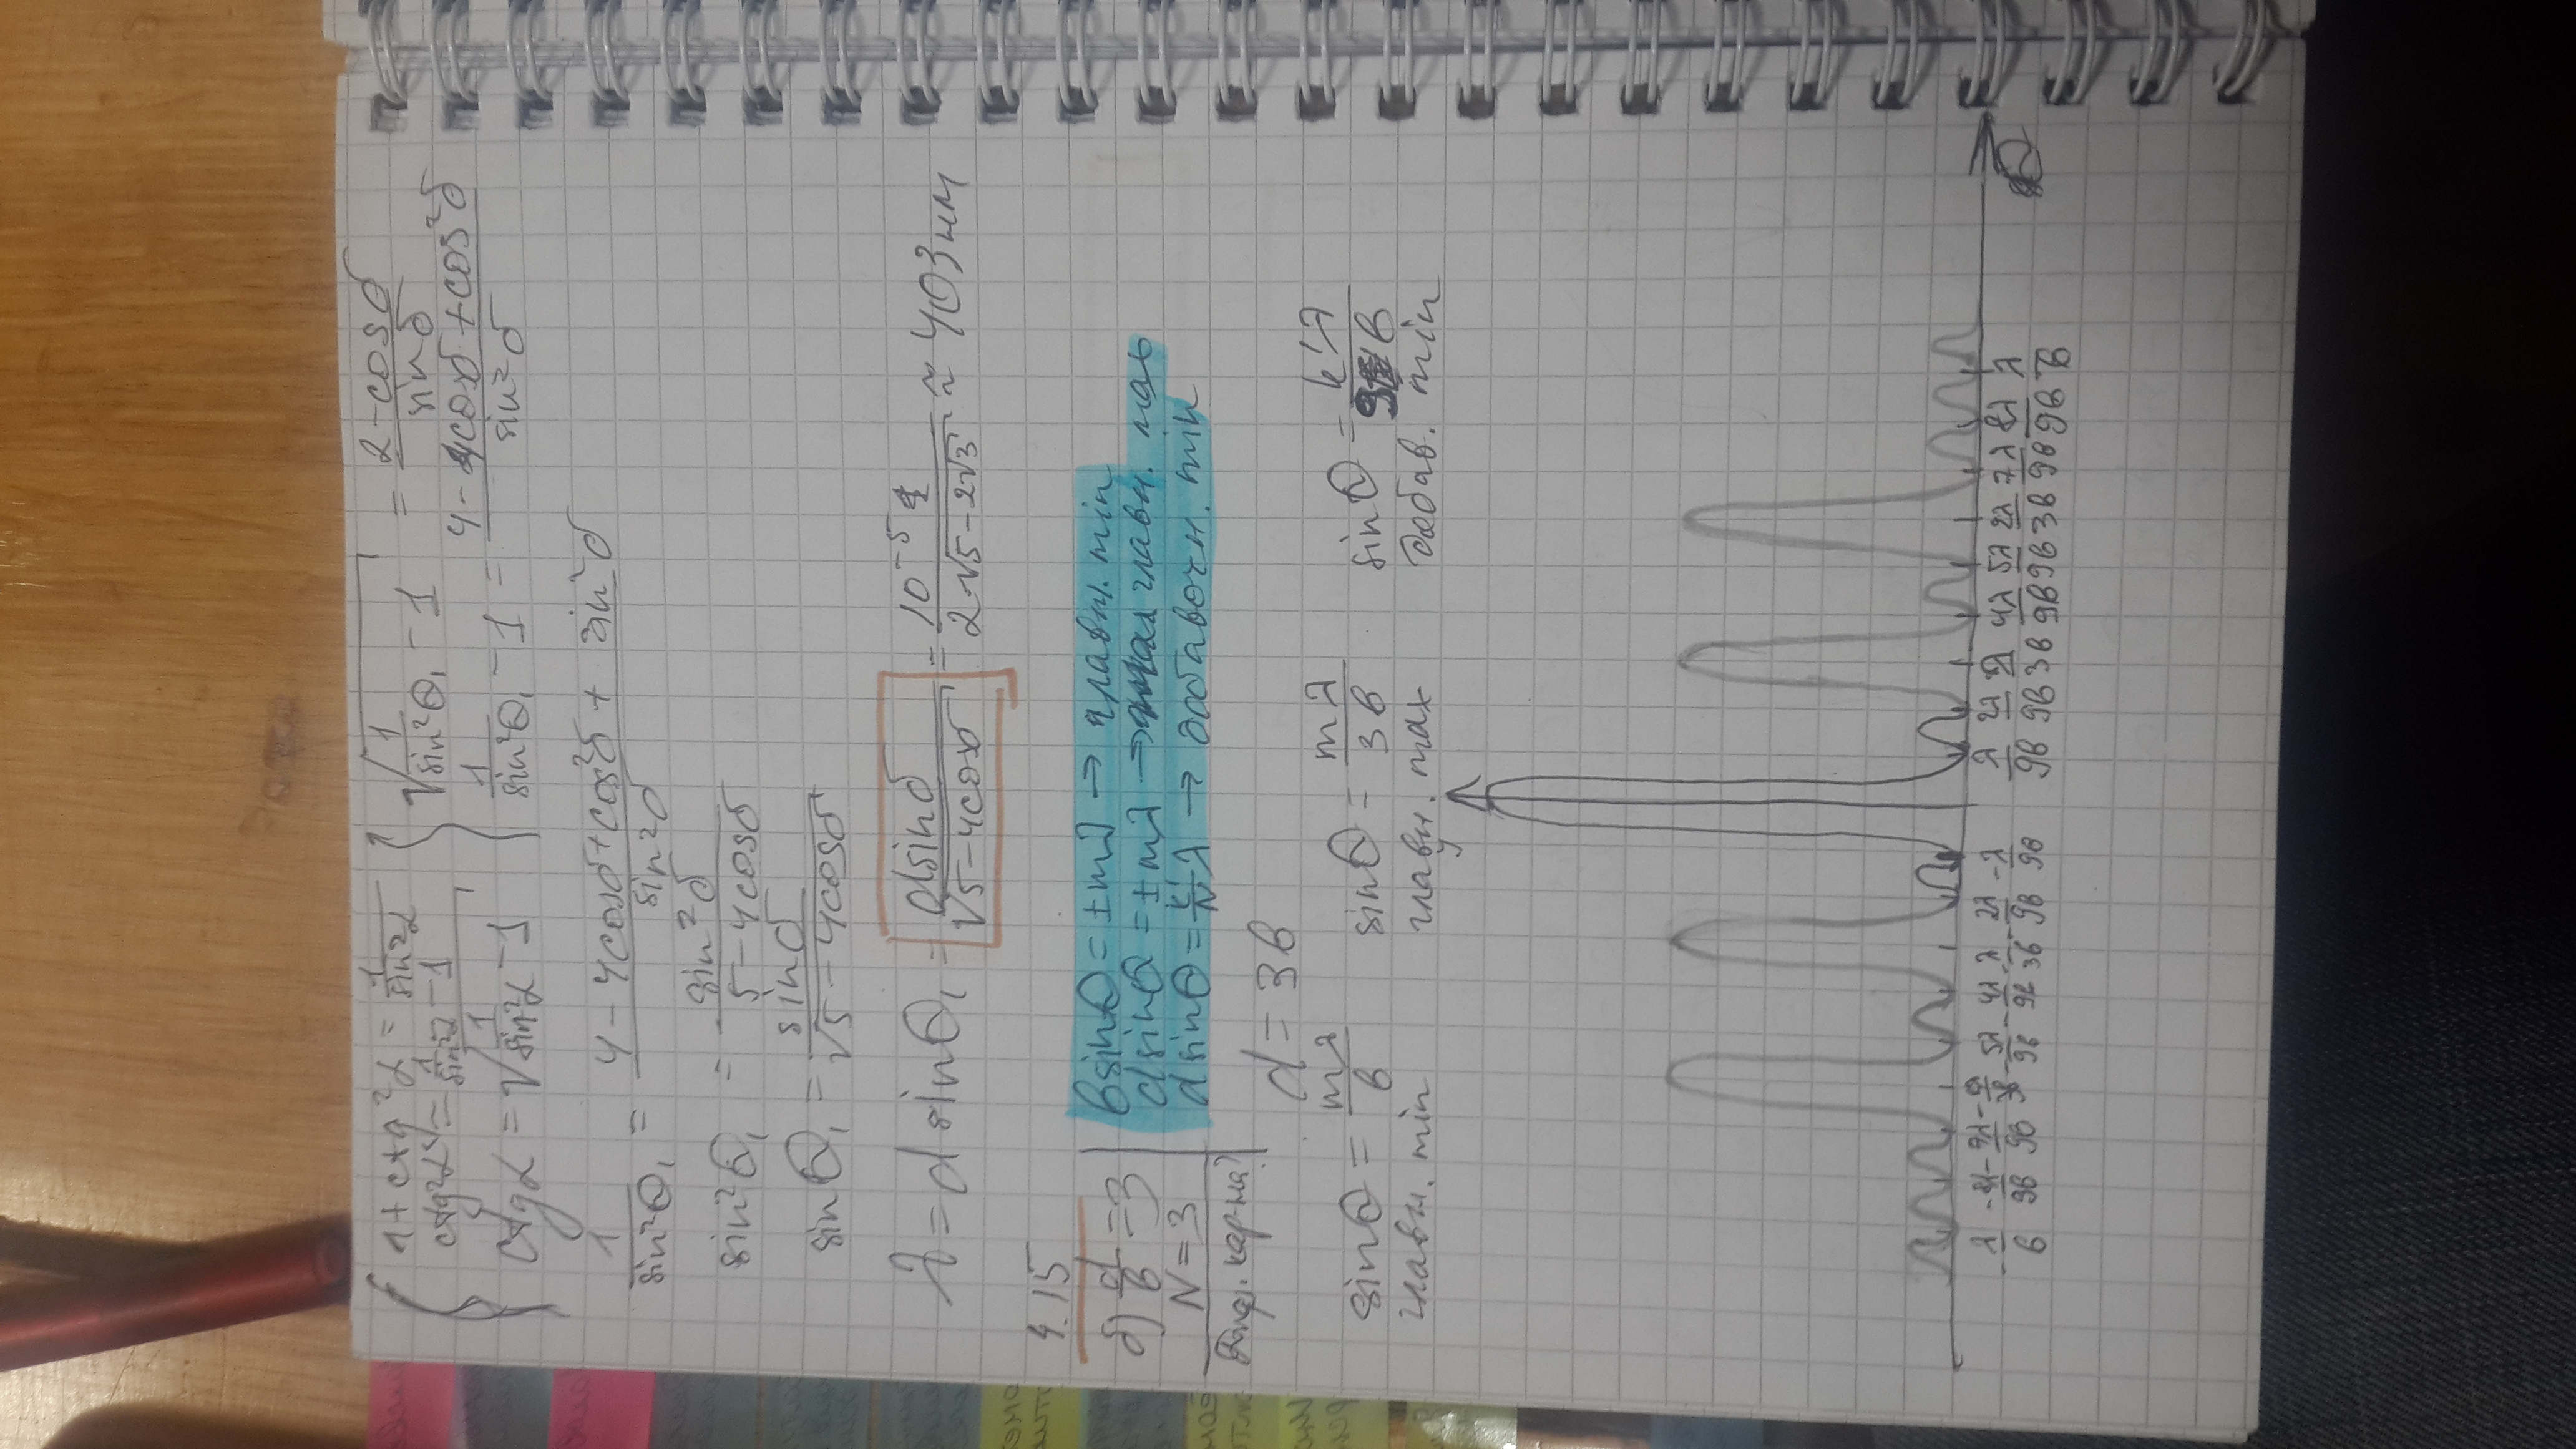 1 + ctg²α = 1/sin²α
ctg²α = 1/sin²α - 1
ctgα = √(1/sin²α - 1)
√(1/sin²Θ₁ - 1) = (2 - cosδ)/sinδ
1/sin²Θ₁ - 1 = (4 - 4cosδ + cos²δ)/sin²δ
1/sin²Θ₁ = (4 - 4cosδ + cos²δ + sin²δ)/sin²δ
sin²Θ₁ = sin²δ/(5 - 4cosδ)
sinΘ₁ = sinδ/√(5 - 4cosδ)
λ = d sinΘ₁ = d sinδ/√(5 - 4cosδ) = 10⁻⁵ · 1/(2√(5 - 2√3)) ≈ 403 нм
4.15
б) d/b = 3
N = 3
b sinΘ = ±mλ → главн. min
d sinΘ = ±mλ → главн. max
d sinΘ = k'/N λ → добавочн. min
d = 3b
sinΘ = mλ/b
главн. min
sinΘ = mλ/3b
главн. max
sinΘ = k'λ/9b
добав. min
-λ/b -8λ/9b -7λ/9b -2λ/3b -5λ/9b -4λ/9b -λ/3b -2λ/9b -λ/9b λ/9b 2λ/9b λ/3b 4λ/9b 5λ/9b 2λ/3b 7λ/9b 8λ/9b λ/b